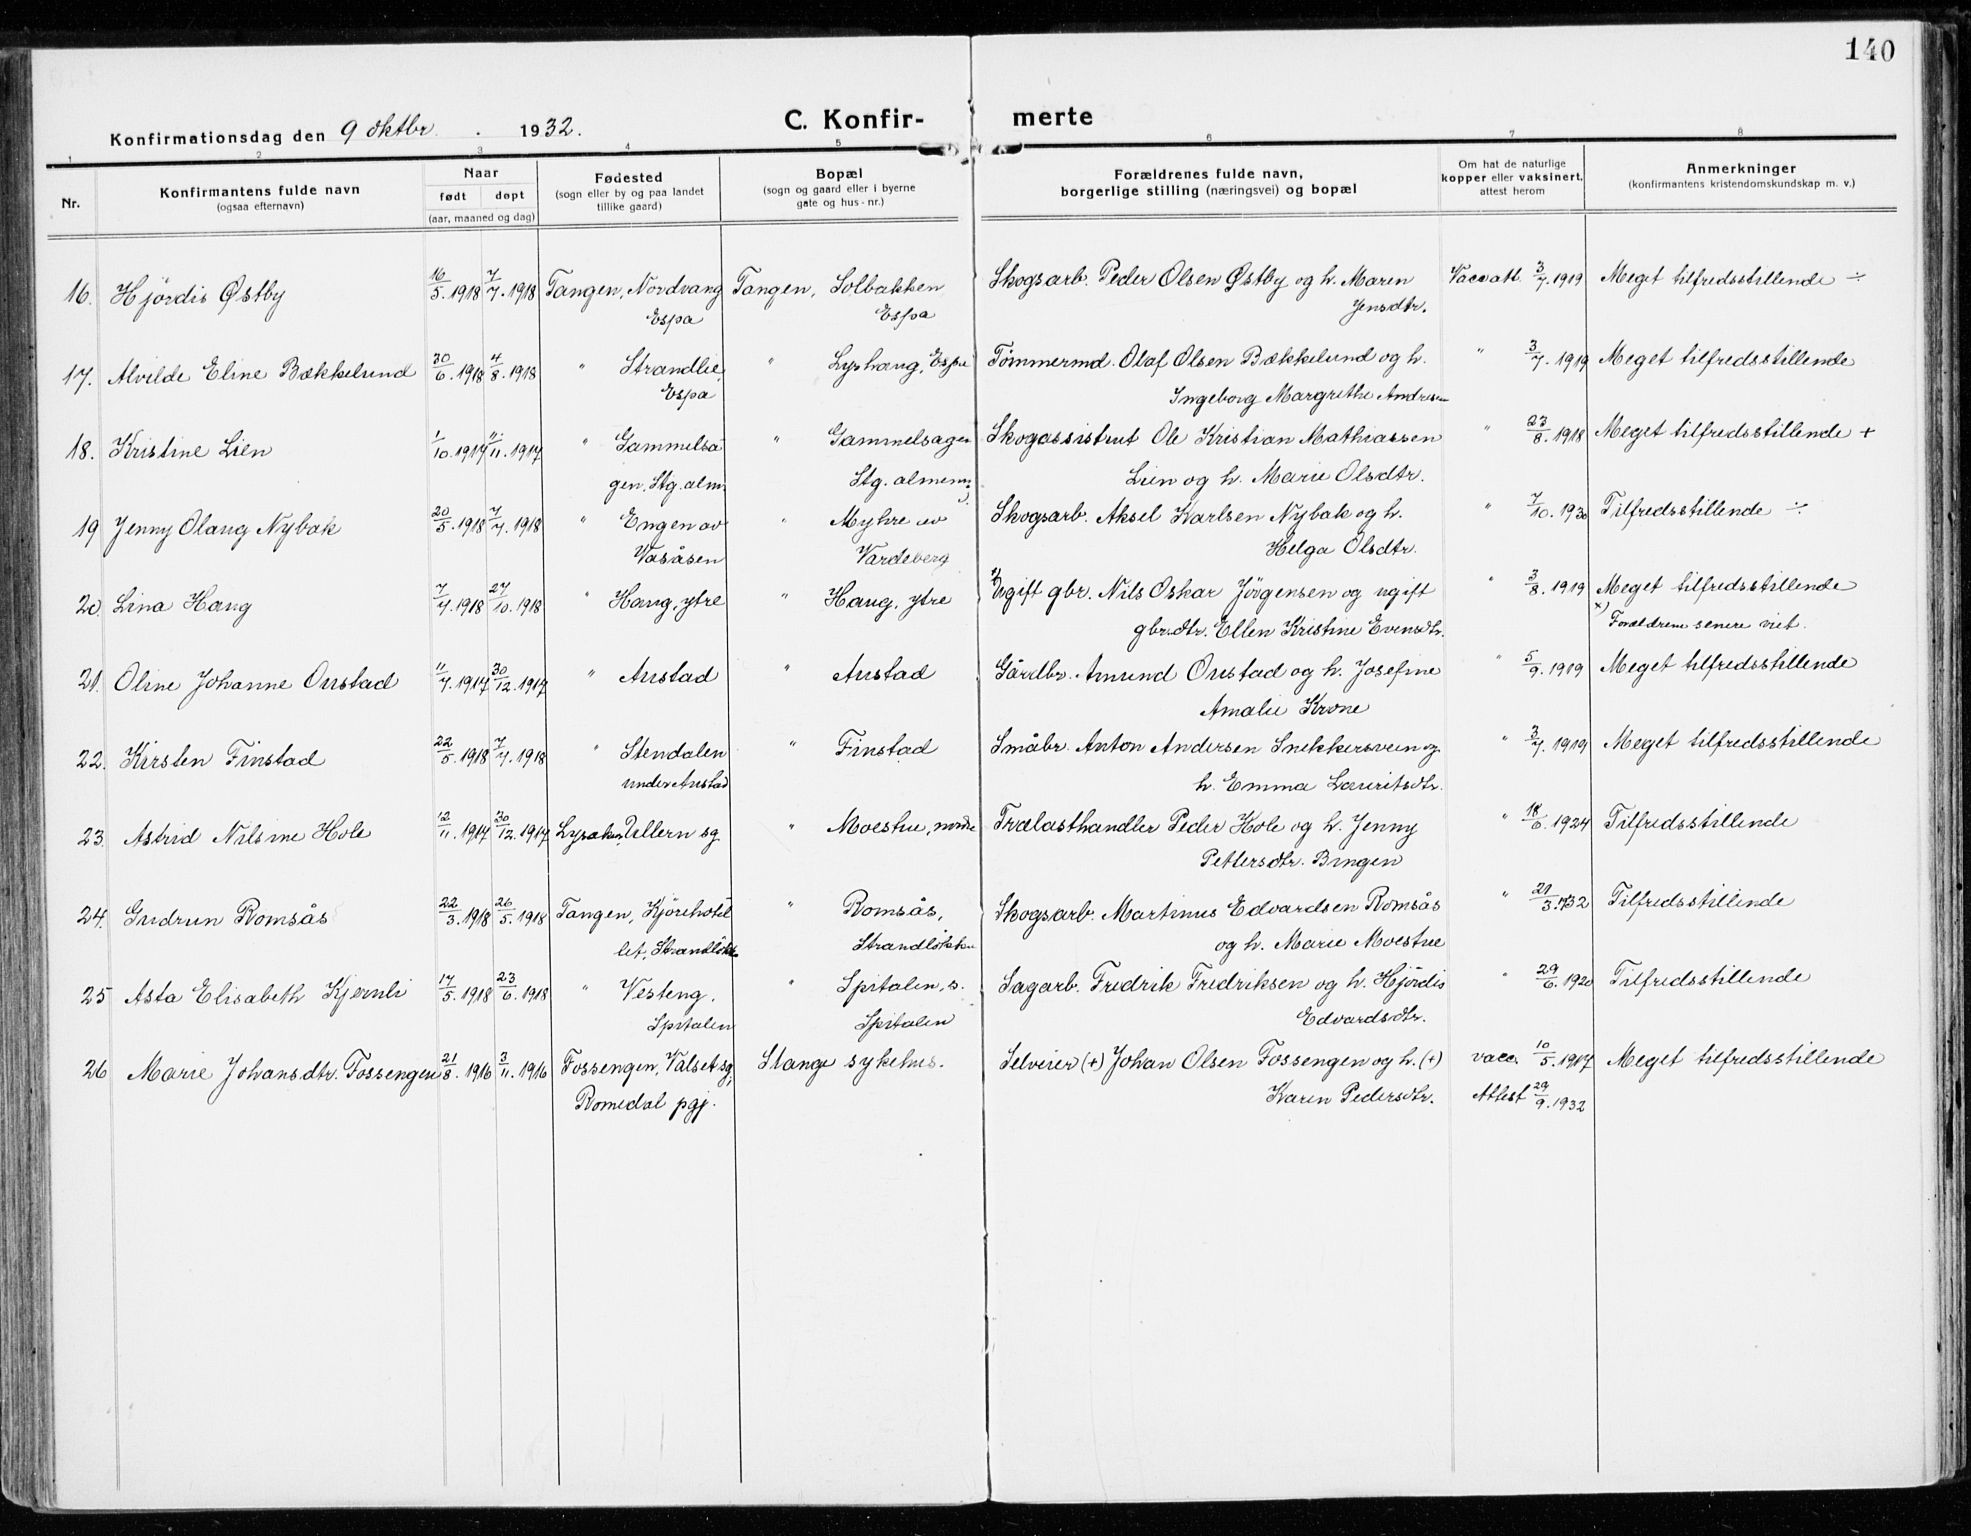 140
Konfirmationsdag den 9 oktbr. 1932.
C. Konfir- merte
1 2 3 4 5 6 7 8
Nr.
Konfirmantens fulde navn
(ogsaa efternavn)
Naar
født døpt
(aar, maaned og dag)
Fødested
(sogn eller by og paa landet
tillike gaard)
Bopæl
(sogn og gaard eller i byerne
gate og hus-nr.)
Forældrenes fulde navn,
borgerlige stilling (næringsvei) og bopæl
Om hat de naturlige
kopper eller vaksinert,
attest herom
Anmerkninger
(konfirmantens kristendomskundskap m. v.)
16. Hjördis Østby 16/5. 1918 7/7. 1918 Tangen, Nordvang Tangen, Solbakken Skogsarb. Peder Olsen Østby og h. Maren Vacc att. 3/7. 1919 Meget tilfredsstillende ÷
Espa Espa Jensdtr.
17. Alvilde Eline Bækkelund 30/6. 1918 4/8. 1918 " Strandlie, " Lyshaug, Espa Tømmermd. Olaf Olsen Bækkelund og h. " 3/7. 1919 Meget tilfredsstillende
Espa Ingeborg Margrethe Andresen
18. Kristine Lien 1/10. 1917 11/11. 1917 " Gammelsa " Gammelsagen Skogassistent Ole Kristian Mathiassen " 23/8. 1918 Meget tilfredsstillende +
gen. Stg. alm. Stg. almenn. Lien og h. Marie Olsdtr.
19 Jenny Olaug Nybak 20/5. 1918 7/7. 1918 " Engen av " Myhre av Skogsarb. Aksel Karlsen Nybak og h. " 7/10. 1930 Tilfredsstillende ÷
Vasåsen Vardeberg Helga Olsdtr.
20. Lina Haug 7/7. 1918 27/10. 1918 " Haug, ytre " Haug, ytre x) Ugift gbr. Nils Oskar Jörgensen og ugift " 3/8. 1919 Meget tilfredsstillende
gbr.dtr. Ellen Kristine Evensdtr. x) Forældrene senere viet.
21. Oline Johanne Onstad 11/7. 1917 30/12. 1917 " Anstad " Anstad Gårdbr. Amund Onstad og h. Josefine " 5/9. 1919 Meget tilfredsstillende
Amalie Krone
22. Kirsten Finstad 22/5. 1918 7/7. 1918 " Stendalen " Finstad Småbr. Anton Andersen Snekkersveen og " 3/7. 1919 Meget tilfredsstillende
under Anstad h. Emma Lauritsdtr.
23. Astrid Nilsine Hole 12/11. 1917 30/12. 1917 Lysaker, Ullern sg " Moestue, nordre Trælasthandler Peder Hole og h. Jenny " 18/6. 1924 Tilfredsstillende
Pettersdtr. Bingen
24. Gudrun Romsås 22/3. 1918 26/5. 1918 Tangen, Kjörehotel " Romsås, Skogsarb. Martinus Edvardsen Romsås " 21/3. 1932 Tilfredsstillende
let, Strandløkk. Strandløkken og h. Marie Moestue
25 Asta Elisabeth Kjernli 17/5. 1918 23/6. 1918 " Vesteng. " Spitalen, s. Sagarb. Fredrik Fredriksen og h. Hjördis " 29/6. 1920 Tilfredsstillende
Spitalen Spitalen Edvardsdtr.
26 Marie Johansdtr. Fossengen 21/8. 1916 3/11. 1916 Fossengen, Valset sg, Stange sykehus. Selveier (+) Johan Olsen Fossengen og h. (+) vacc. 10/5. 1917 Meget tilfredsstillende
Romedal pgj. Karen Pedersdtr. Attest 29/9. 1932